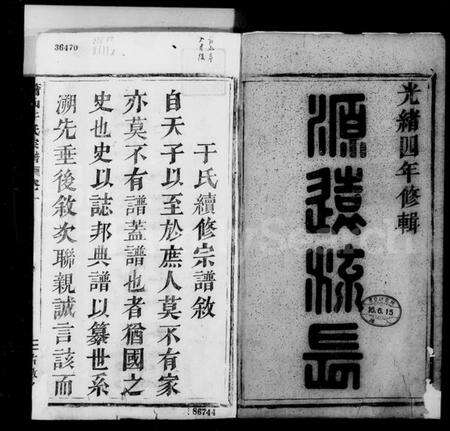 光緒四年修輯
源遠流長
16.6.15
36470
于氏續修宗譜敘
自天子以至於庶人莫不有家
亦莫不有譜蓋譜也者猶國之
史也史以誌邦典譜以纂世系
溯先垂後敘次聯親誠言該而
86744